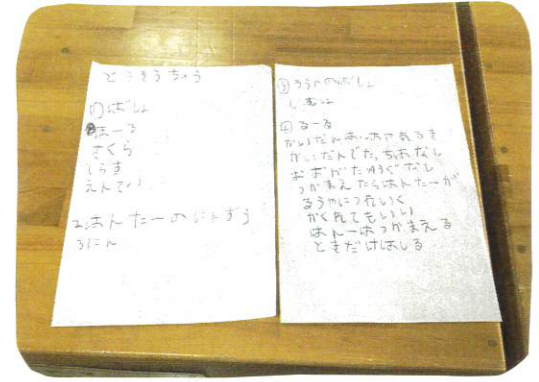 とうそうちゅう
①ばしょ
ほーる
さくら
しらす
えんてい
2はんたーのにんずう
3にん
③ろうやのばしょ
じむしょ
④るーる
かいだんはいはやあるき
かいだんでたっちはなし
おおがたゆうぐなし
つかまえたらはんたーが
ろうやにつれていく
かくれてもいい
はんーはつかまえる
ときだけはしる